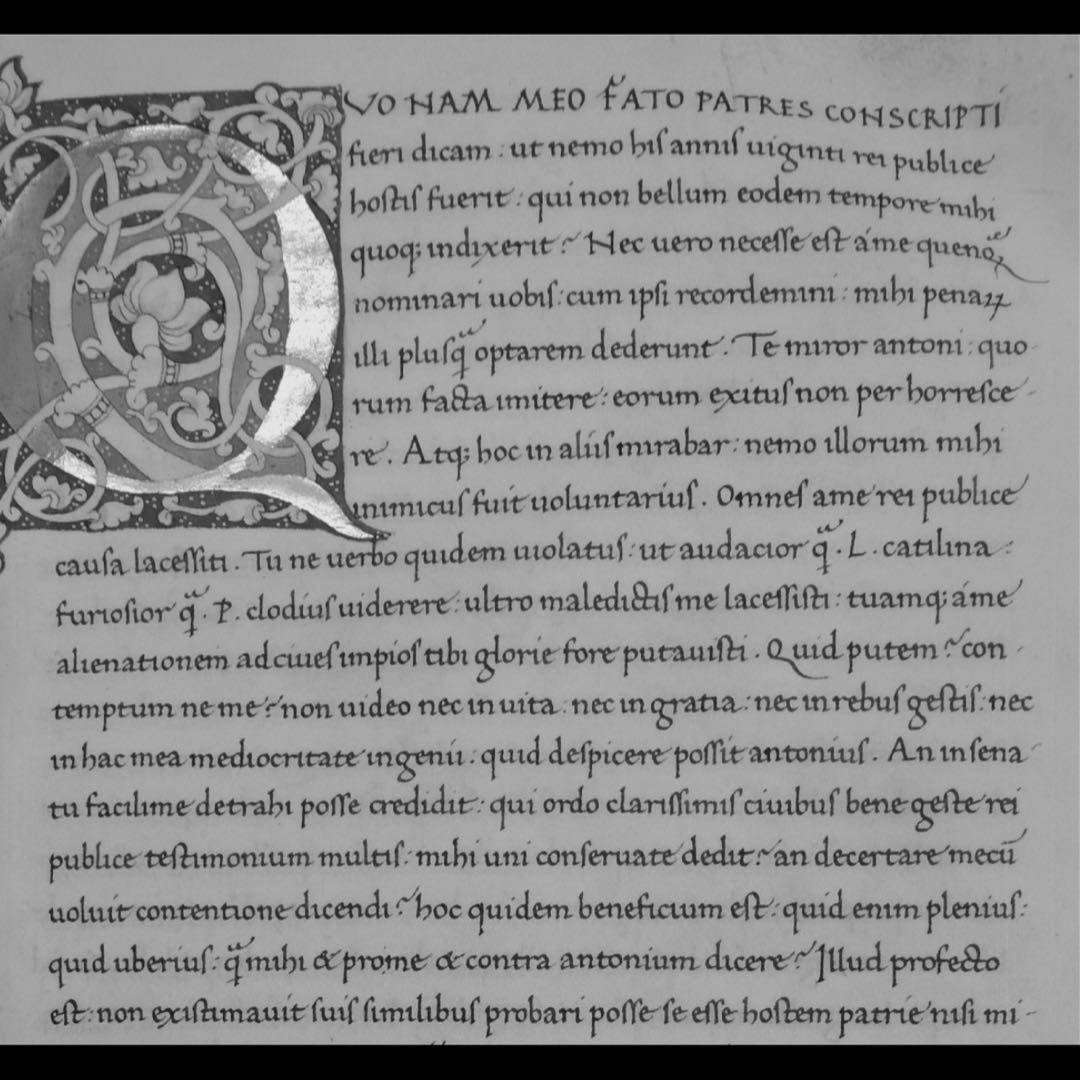 QVO NAM MEO FATO PATRES CONSCRIPTI
fieri dicam : ut nemo hiſ anniſ uiginti rei publice
hoſtiſ fuerit : qui non bellum eodem tempore mihi
quoq; indixerit? Nec uero neceſſe eſt áme quenq̃
nominari uobiſ : cum ipſi recordemini : mihi penaꝝ
illi pluſq̃ optarem dederunt . Te miror antoni : quo-
rum facta imitere : eorum exituſ non per horreſce-
re . Atq; hoc in aliíſ mirabar : nemo illorum mihi
inimicuſ fuit uoluntariuſ . Omneſ ame rei publice
cauſa laceſſiti . Tu ne uerbo quidem uiolatuſ : ut audacior q̃ . L . catilina :
furioſior q̃ . P . clodiuſ uiderere : ultro maledictiſ me laceſſiſti : tuamq; áme
alienationem ad ciueſ impioſ tibi glorie fore putauiſti . Quid putem? con-
temptum ne me? non uideo nec in uita : nec in gratia : nec in rebuſ geſtiſ : nec
in hac mea mediocritate ingenii : quid deſpicere poſſit antoniuſ . An in ſena-
tu facilime detrahi poſſe credidit : qui ordo clariſſimiſ ciuibuſ bene geſte rei
publice teſtimonium multiſ : mihi uni conſeruate dedit? an decertare mecū
uoluit contentione dicendi? hoc quidem beneficium eſt : quid enim pleniuſ :
quid uberiuſ : q̃ mihi & pro me & contra antonium dicere? Illud profecto
eſt : non exiſtimauit ſuiſ ſimilibuſ probari poſſe ſe eſſe hoſtem patrie niſi mi-